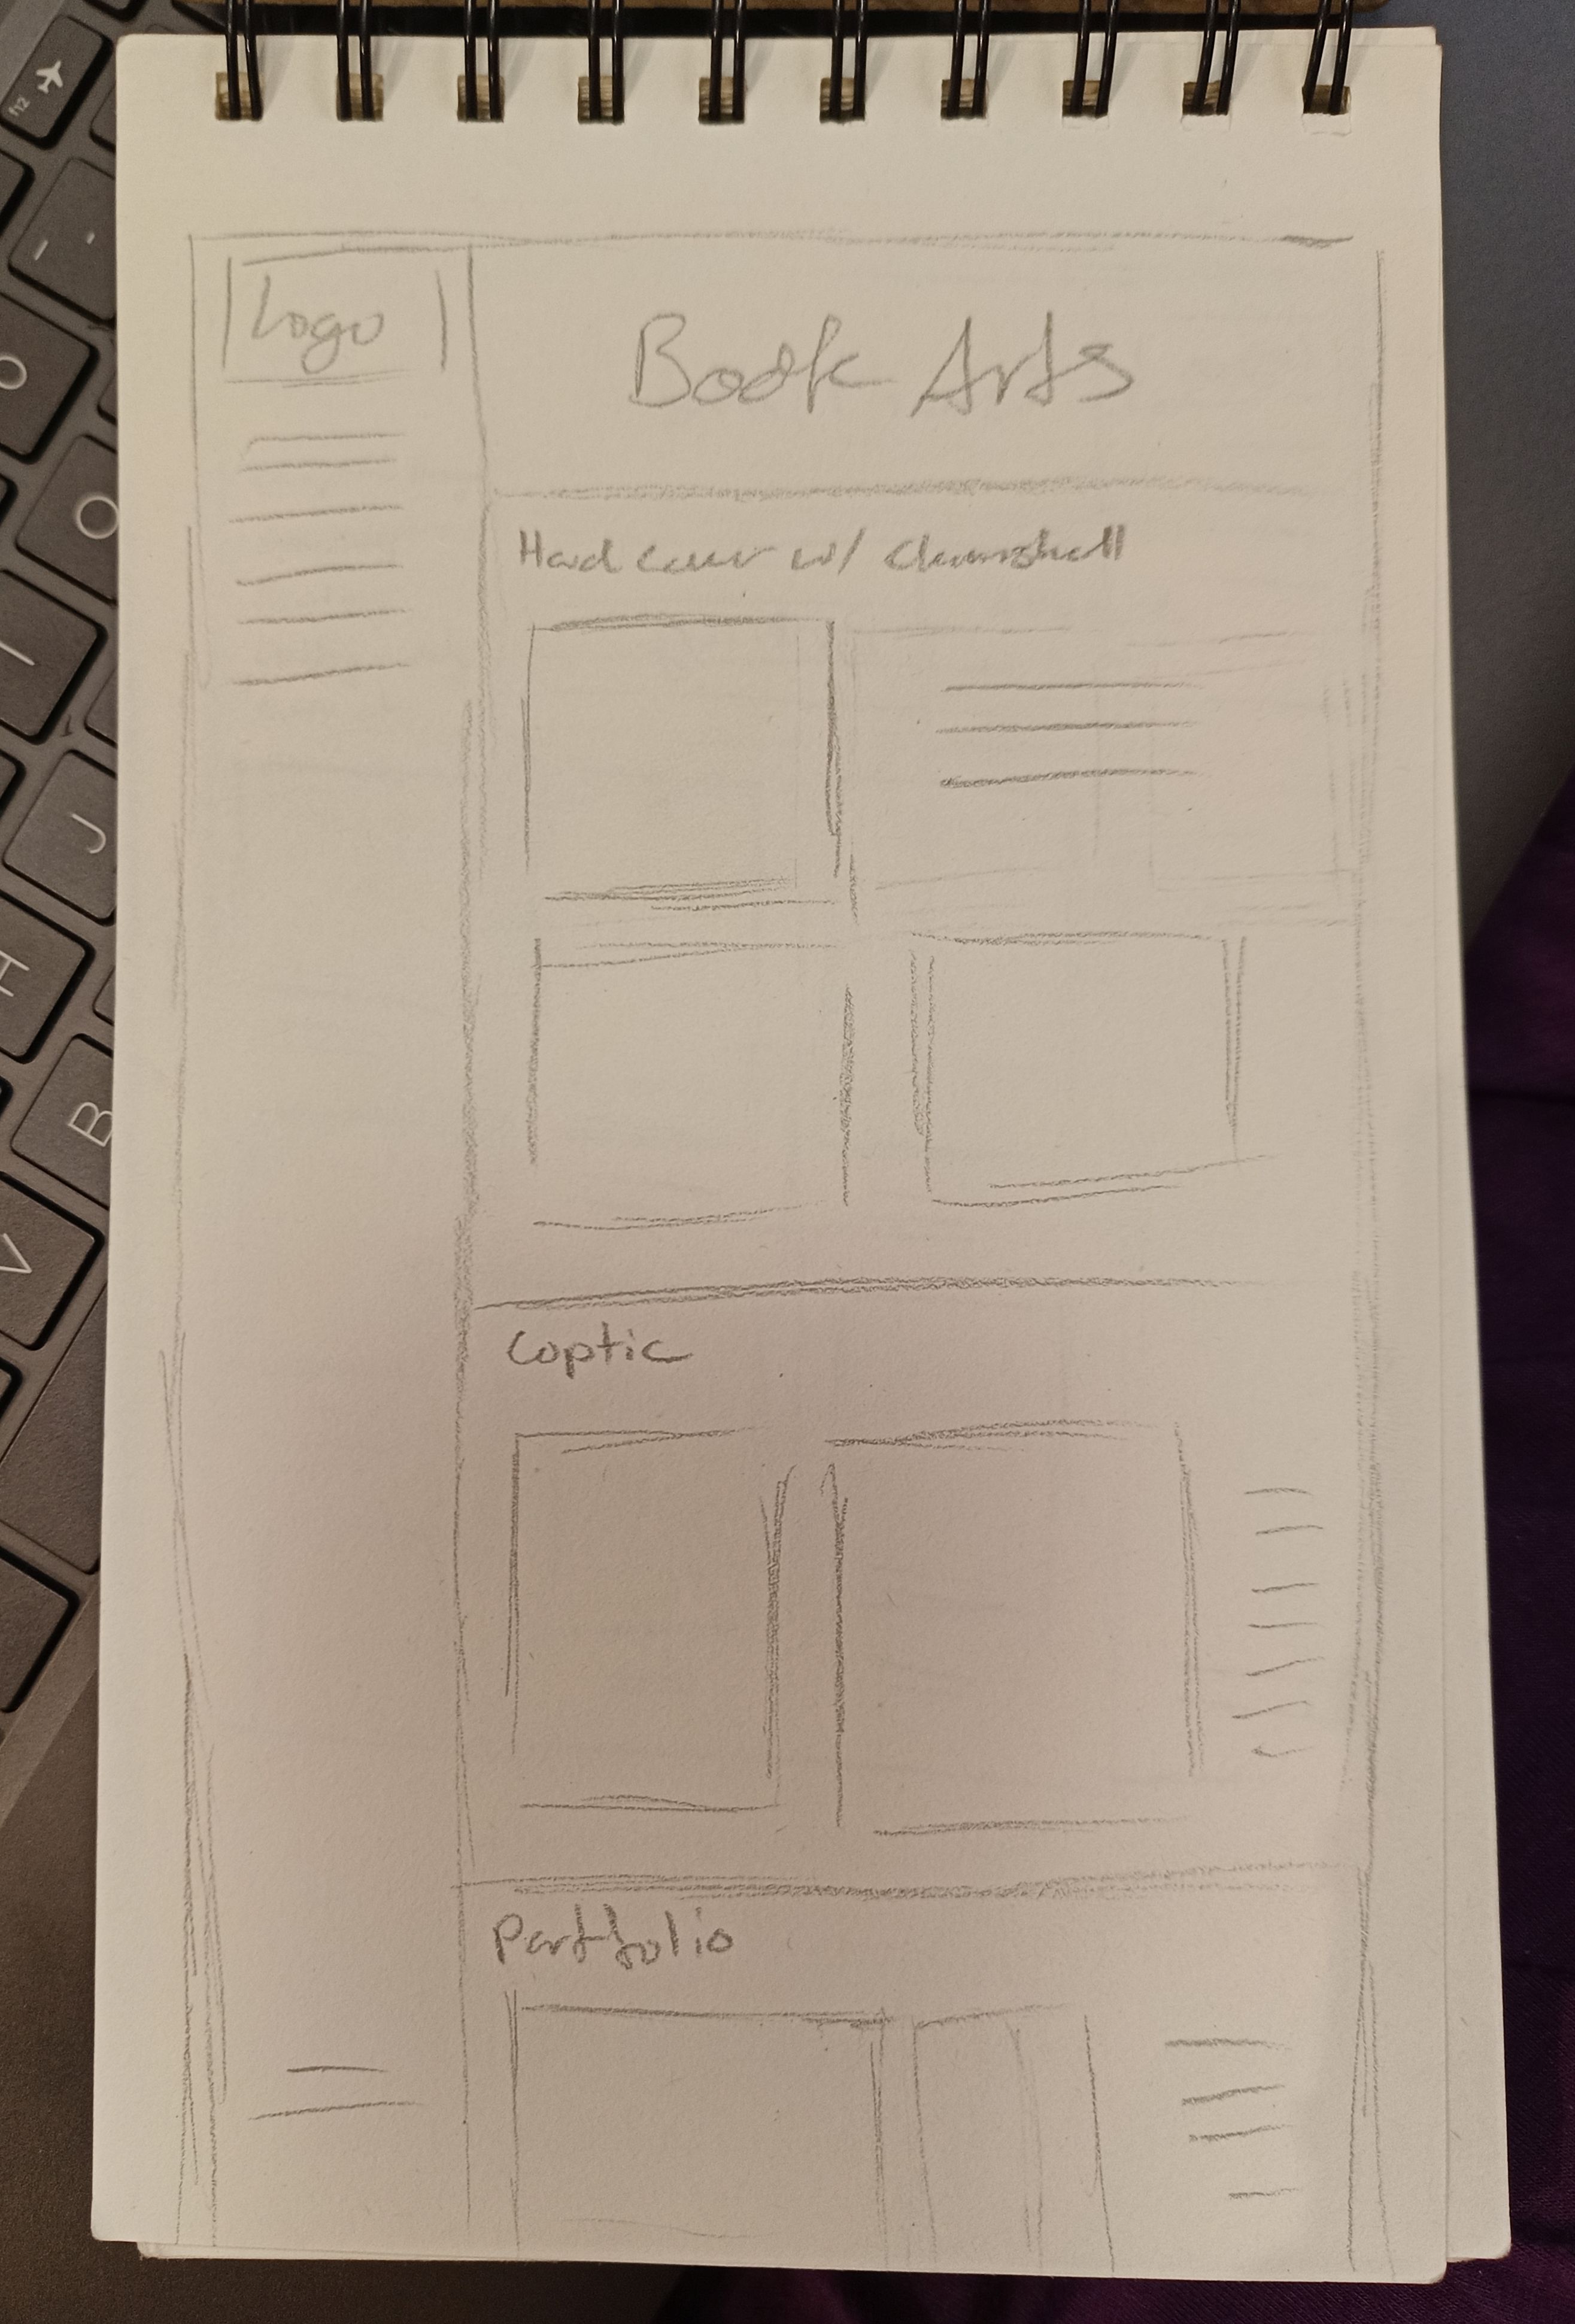 Logo
Book Arts
Hardcover w/ Clamshell
Coptic
Portfolio
f12
O
O
I
J
H
B
V